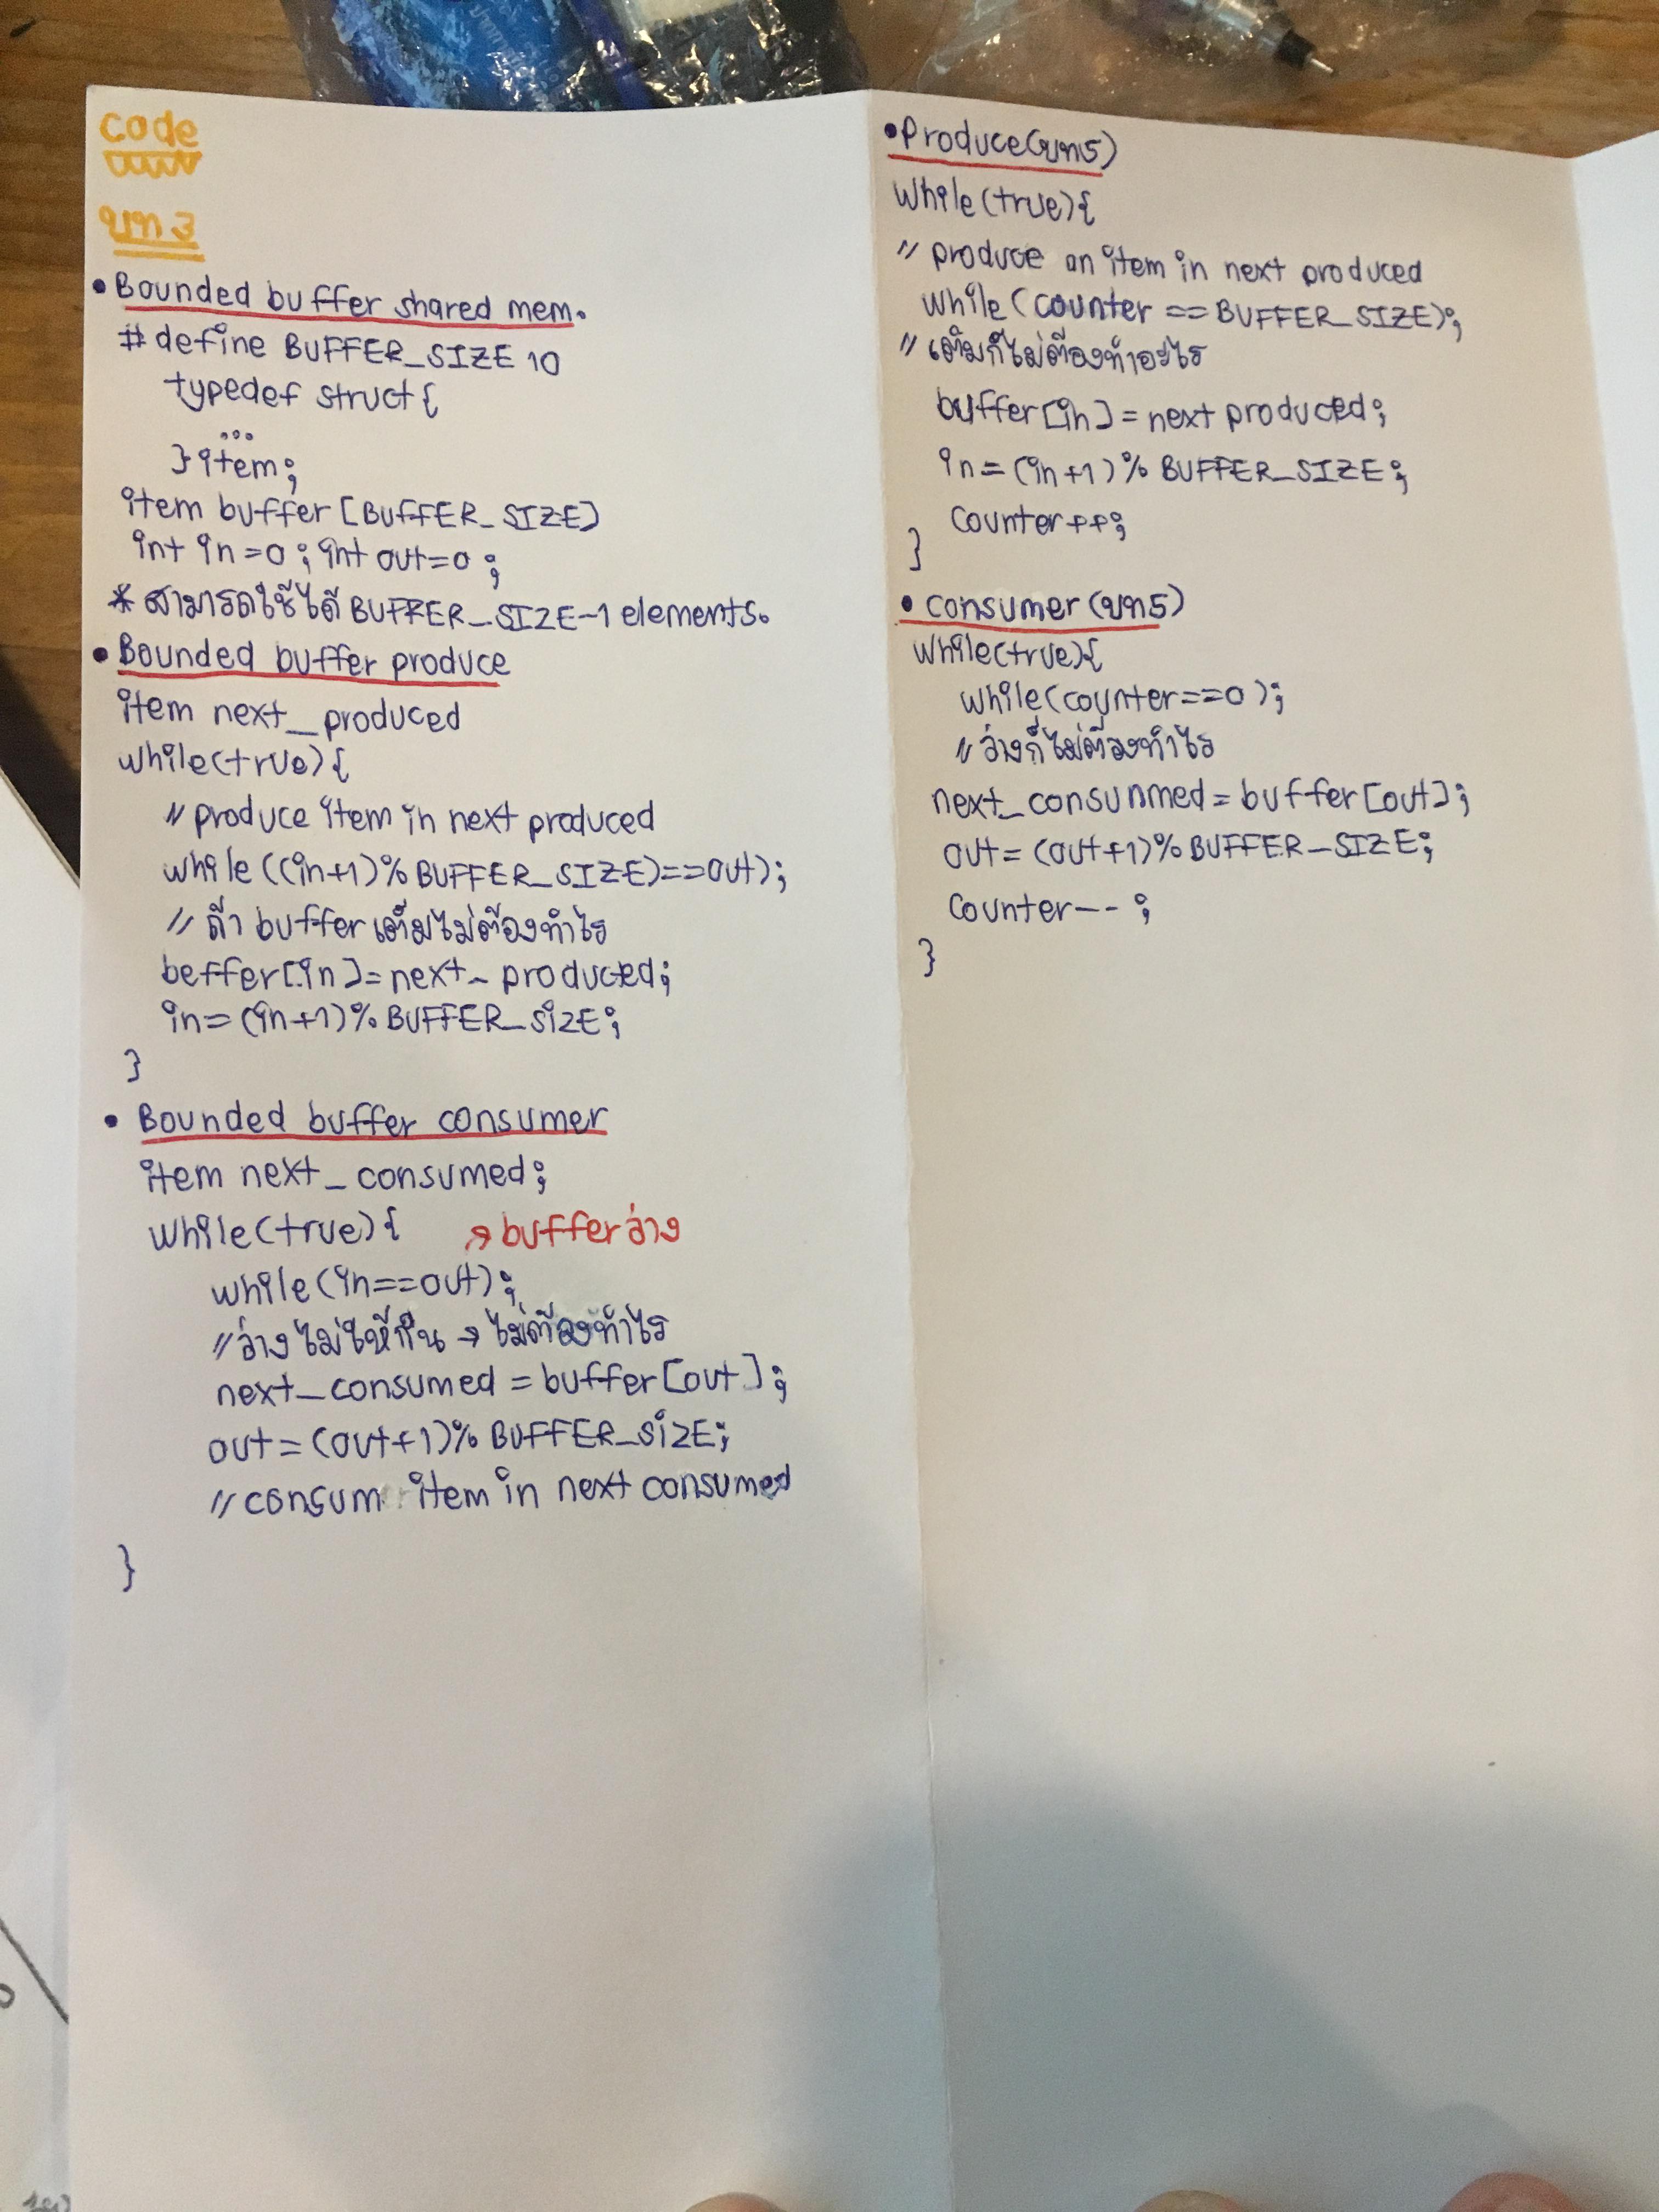 code
บท 3
• Bounded buffer shared mem.
# define BUFFER_SIZE 10
typedef struct {
...
} item;
item buffer [BUFFER_SIZE]
int in = 0 ; int out = 0 ;
* สามารถใช้ได้ BUFFER_SIZE-1 elements.
• Bounded buffer produce
item next_produced
while(true){
// produce item in next produced
while ((in+1)% BUFFER_SIZE)==out);
// ถ้า buffer เต็มไม่ต้องทำไร
beffer[in]=next_produced;
in=(in+1)% BUFFER_SIZE;
}
• Bounded buffer consumer
item next_consumed;
while(true){ → buffer ว่าง
while(in==out);
// ว่างไม่ให้กิน → ไม่ต้องทำไร
next_consumed = buffer[out];
out=(out+1)% BUFFER_SIZE;
// consum item in next consumed
}
• Produce(บท5)
while(true){
// produce an item in next produced
while (counter == BUFFER_SIZE);
// เต็มก็ไม่ต้องทำอะไร
buffer[in]= next produced;
in=(in+1)% BUFFER_SIZE;
counter++;
}
• consumer(บท5)
while(true){
while(counter==0);
// ว่างก็ไม่ต้องทำไร
next_consunmed = buffer[out];
out= (out+1)% BUFFER_SIZE;
counter-- ;
}